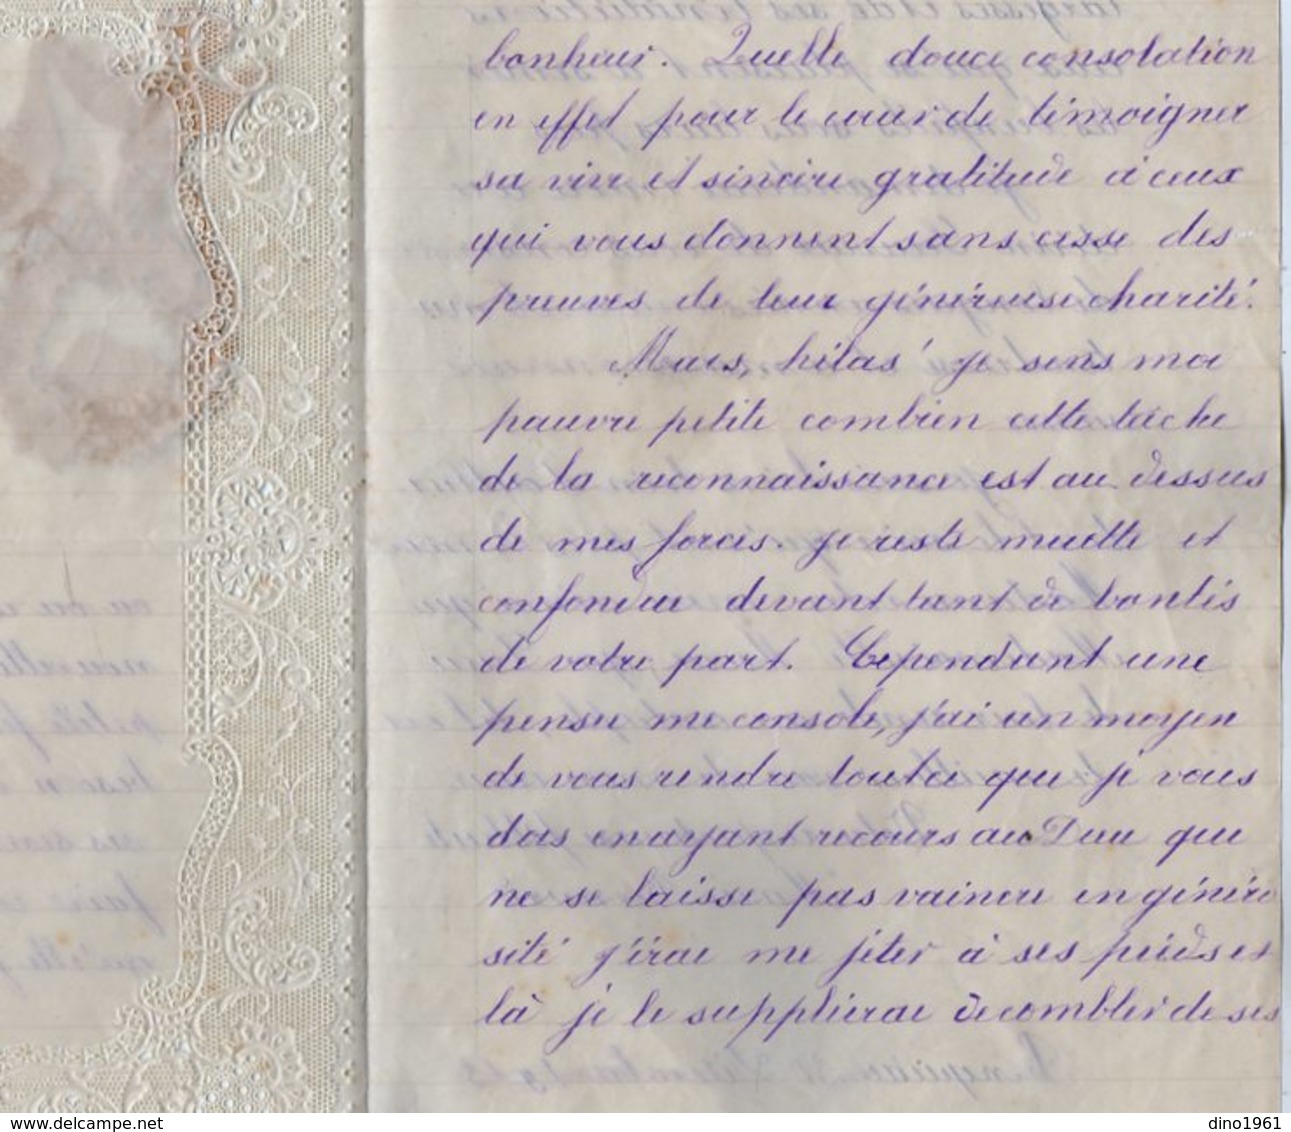 bonheur. Quelle douce consolation
en effet pour le cœur de témoigner
sa vive et sincère gratitude à ceux
qui vous donnent sans cesse des
preuves de leur généreuse charité.
Mais, hélas! je sens moi
pauvre petite combien cette tâche
de la reconnaissance est au dessus
de mes forces. je reste muette et
confondue devant tant de bontés
de votre part. Cependant une
pensée me console, j'ai un moyen
de vous rendre tout ce que je vous
dois en ayant recours au Dieu qui
ne se laisse pas vaincre en généro
sité j'irai me jeter à ses pieds et
là je le supplierai de combler de ses
delcampe.net
dino1961